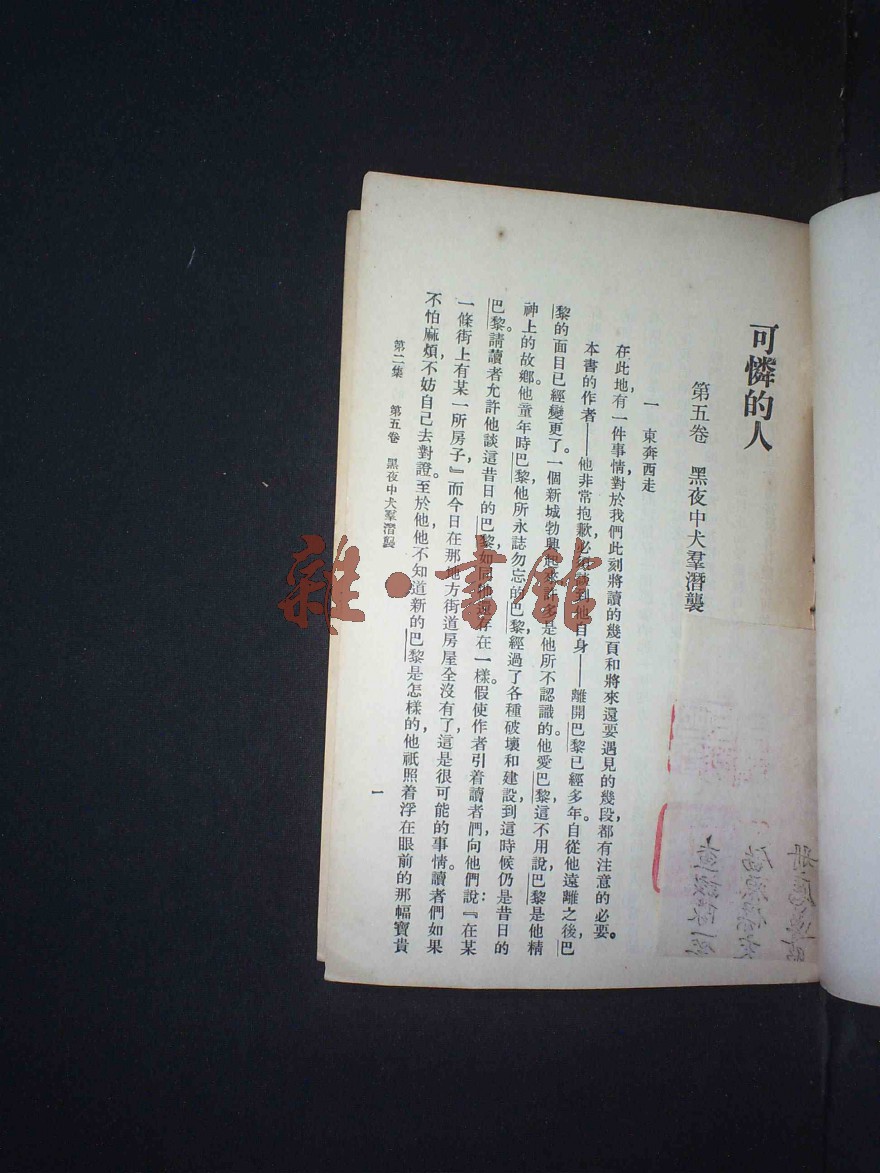 可憐的人
第五卷　黑夜中犬羣潛襲
一　東奔西走
在此地有一件事情，對於我們此刻將讀的幾頁和將來還要遇見的幾段，都有注意的必要。
本書的作者——他非常抱歉，必須談到他自身——離開巴黎已經多年。自從他遠離之後，巴
黎的面目已經變更了。一個新城勃興起來，許多是他所不認識的。他愛巴黎，這不用說，巴黎是他精
神上的故鄉。他童年時巴黎，他所永誌勿忘的巴黎，經過了各種破壞和建設，到這時候仍是昔日的
巴黎。請讀者允許他談這昔日的巴黎，如同他還存在一樣。假使作者引着讀者們，向他們說：『在某
一條街上有某一所房子』而今日在那地方街道房屋全沒有了，這是很可能的事情。讀者們如果
不怕麻煩，不妨自己去對證。至於他，他不知道新的巴黎是怎樣的，他祇照着浮在眼前的那幅寶貴
第二集　第五卷　黑夜中犬羣潛襲
一
雜·書館